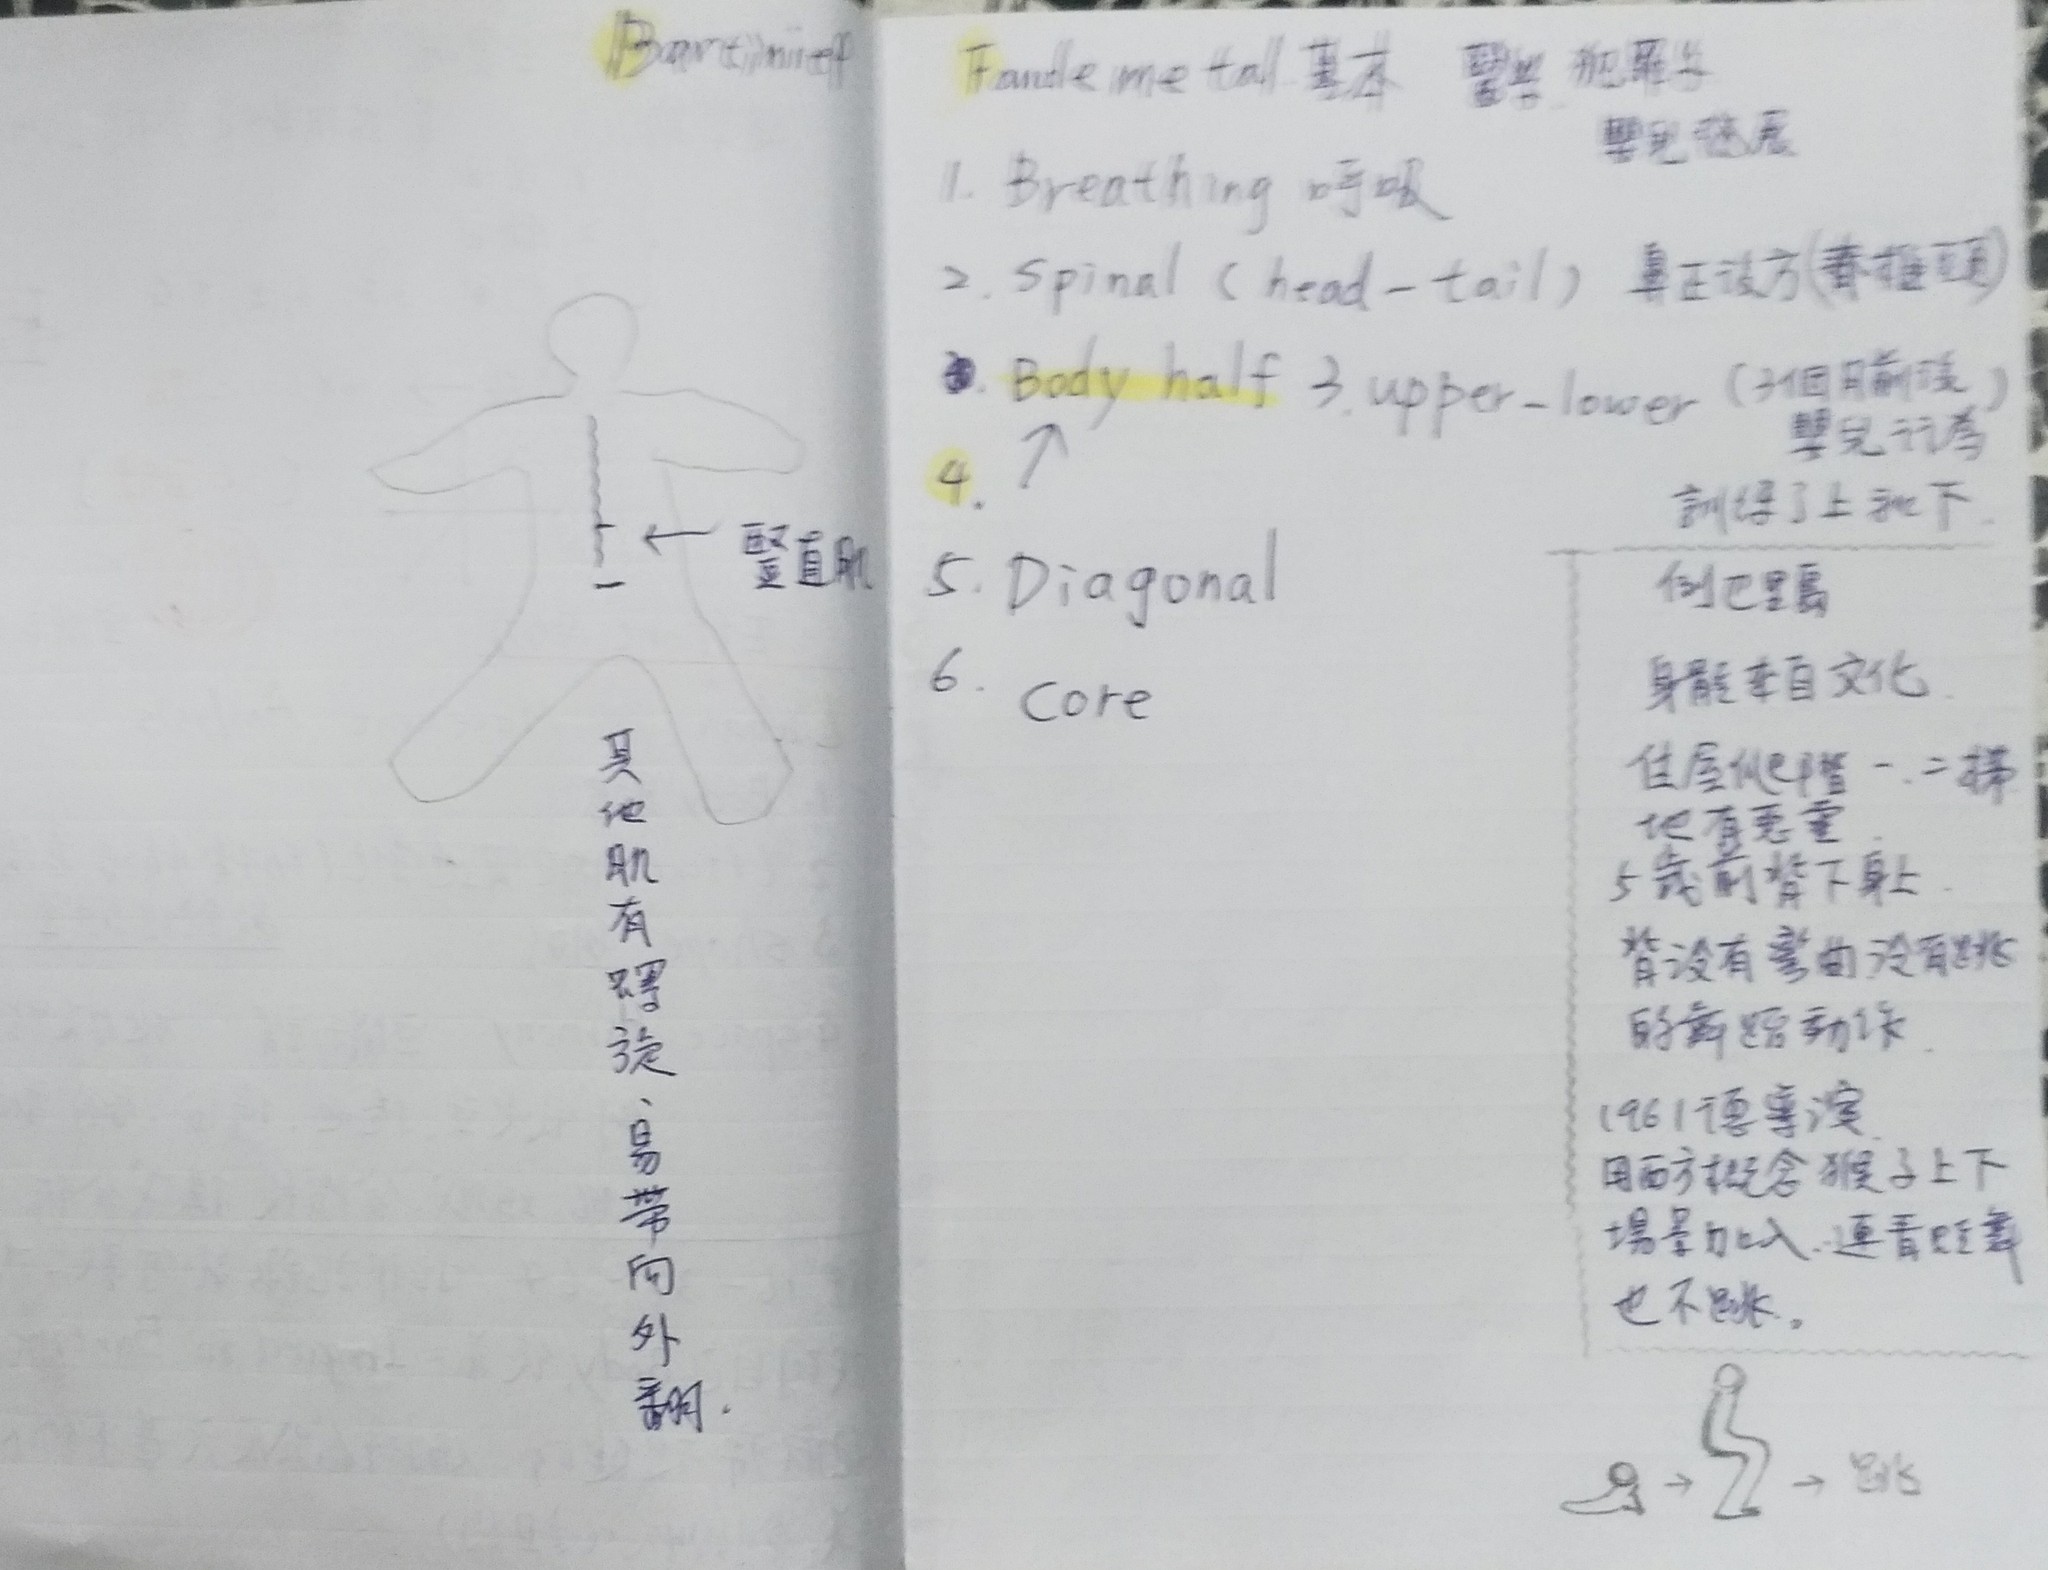 Bartinieff
豎直肌
其他肌有螺旋、易帶向外翻.
Fandemetal 基本 醫學
嬰兒發展
1. Breathing 呼吸
2. Spinal (head-tail)
3. Body half 3. upper-lower (3個月前後)
嬰兒行為
4.
上和下.
5. Diagonal
6. core
例巴里島
身體來自文化.
住屋爬階一.二梯
地有惡靈.
5歲前背下身上.
背沒有彎曲沒有跳
的舞蹈動作.
1961德導演
用西方概念猴子上下
場景加入.連音跳舞
也不跳。
跳